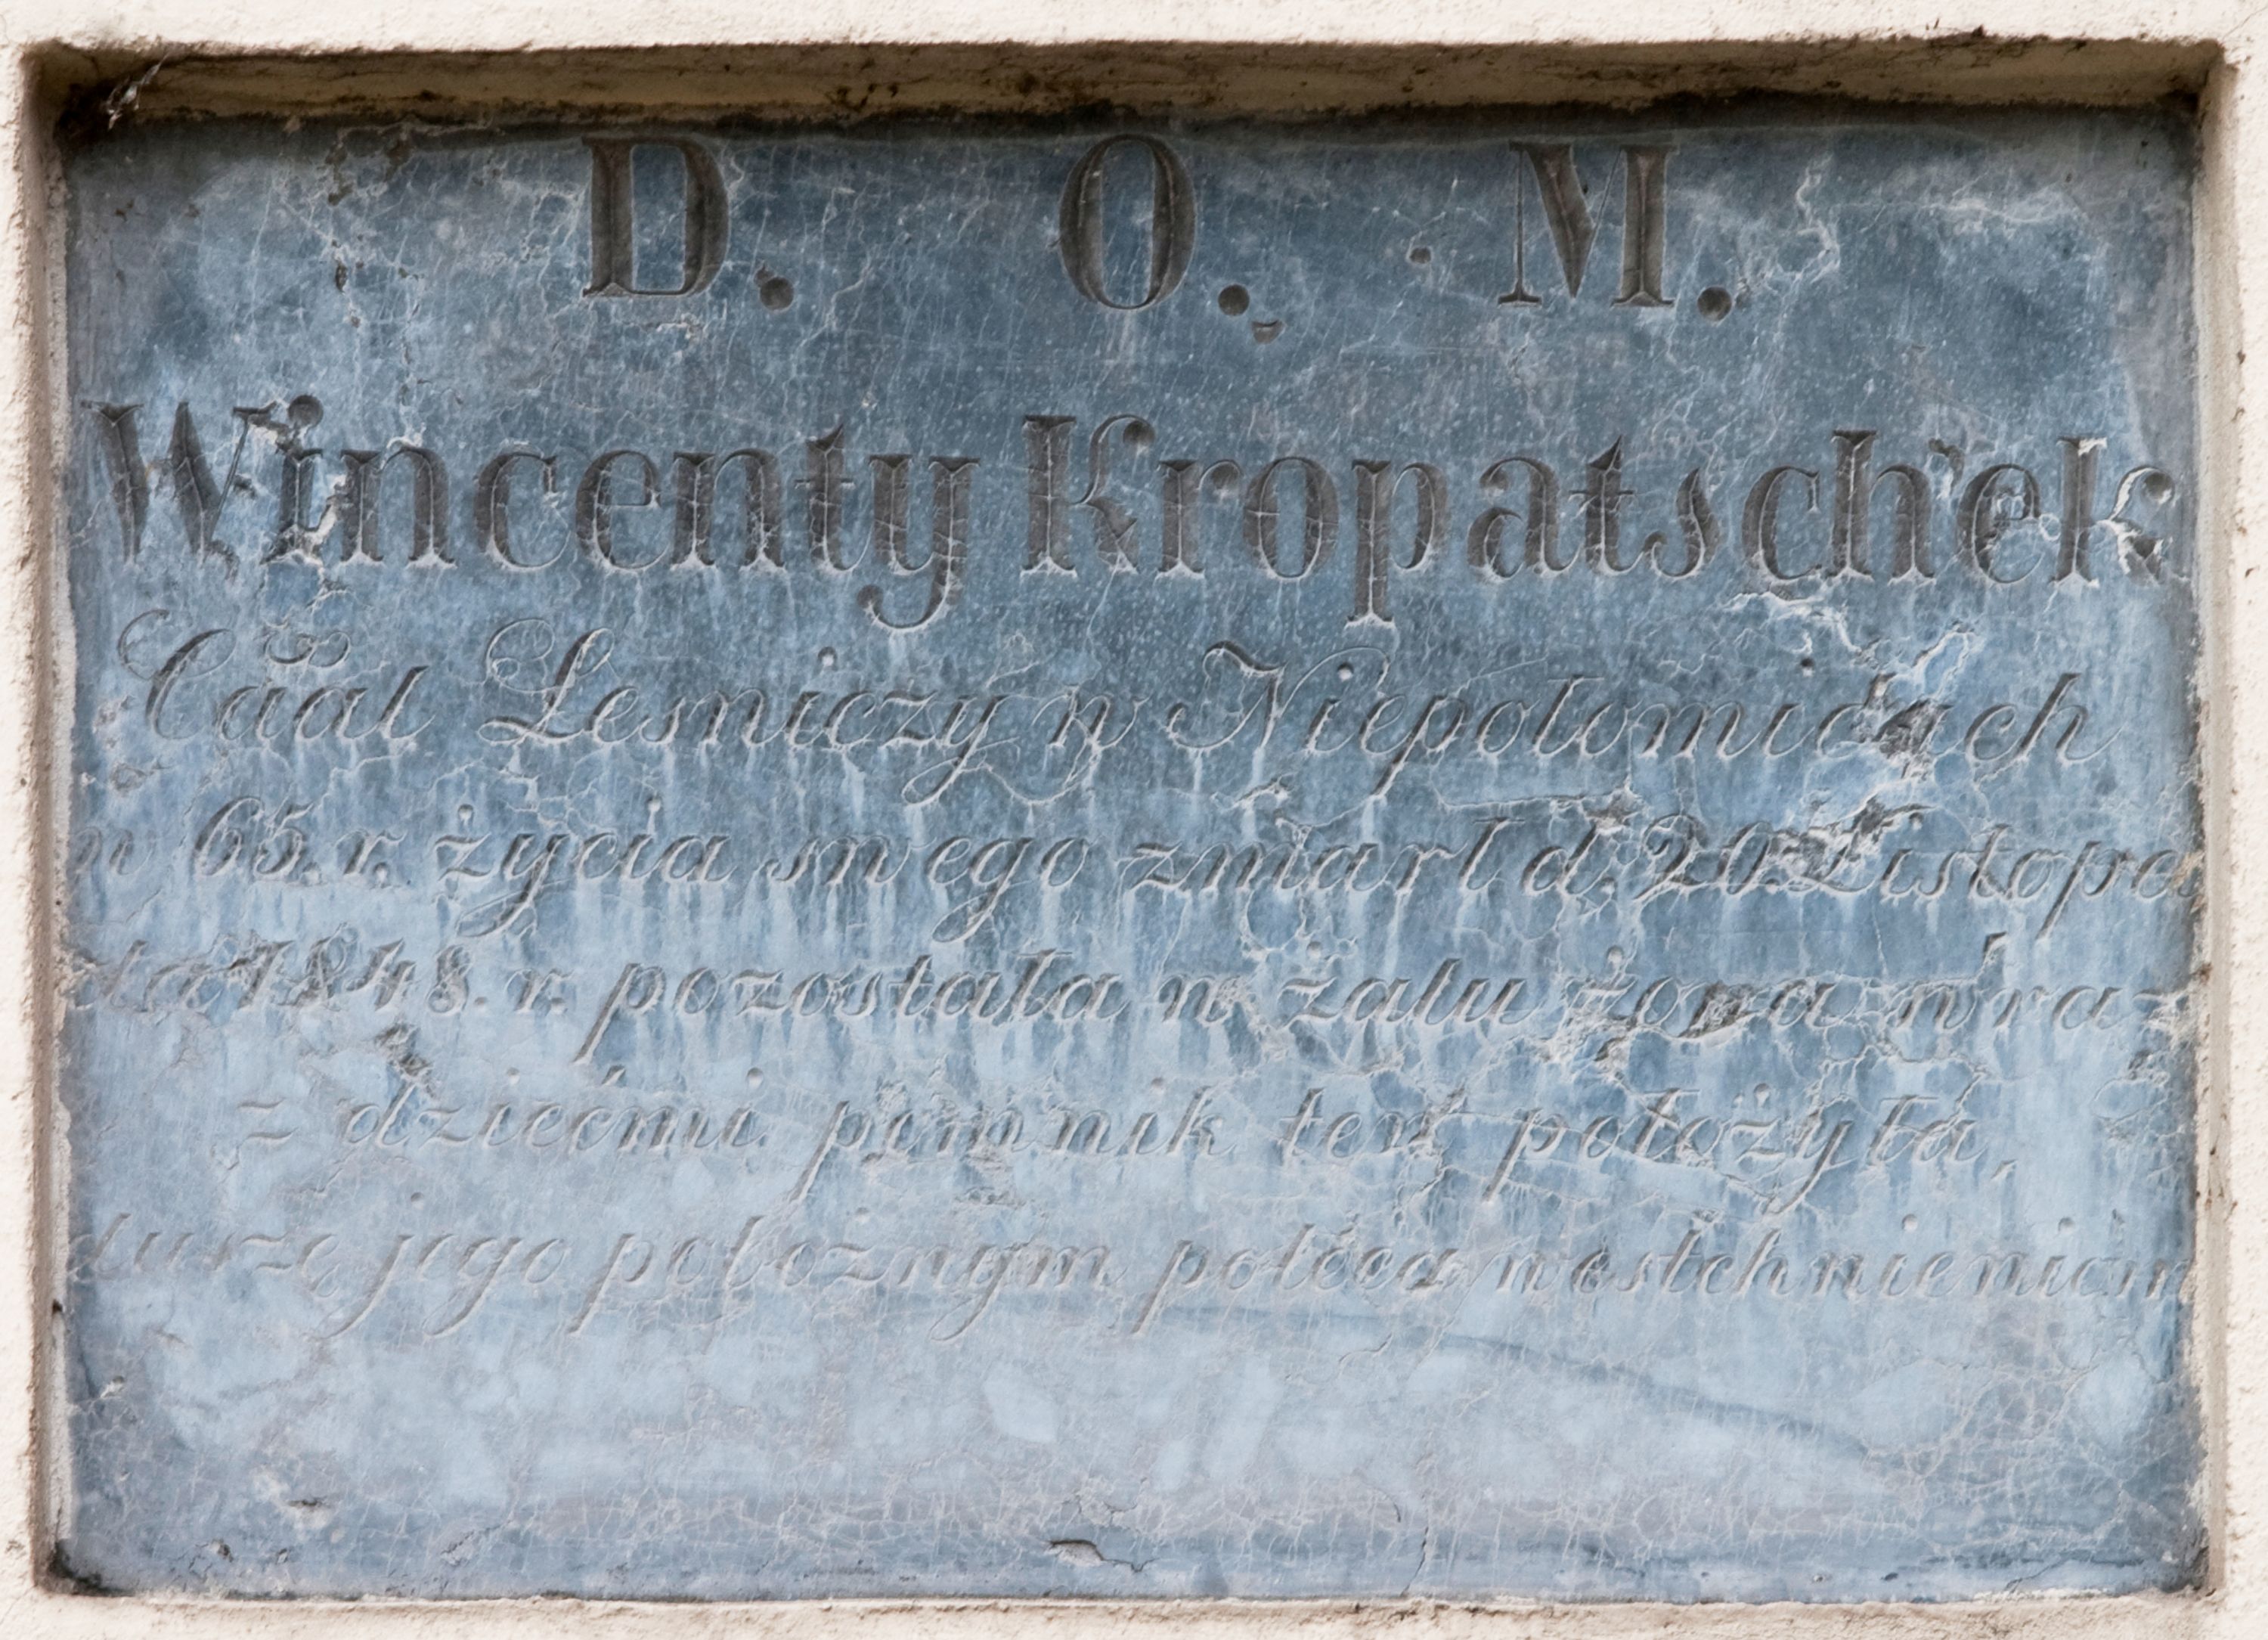 D. O. M.
Wincenty Kropatschek
Leśniczy w Niepołomicach
w 65. r. życia swego zmarł d. 20. Listopa
da 1848. r. pozostała w żalu żona wraz
z dziećmi pomnik ten położyła,
duszę jego pobożnym poleca westchnieniom